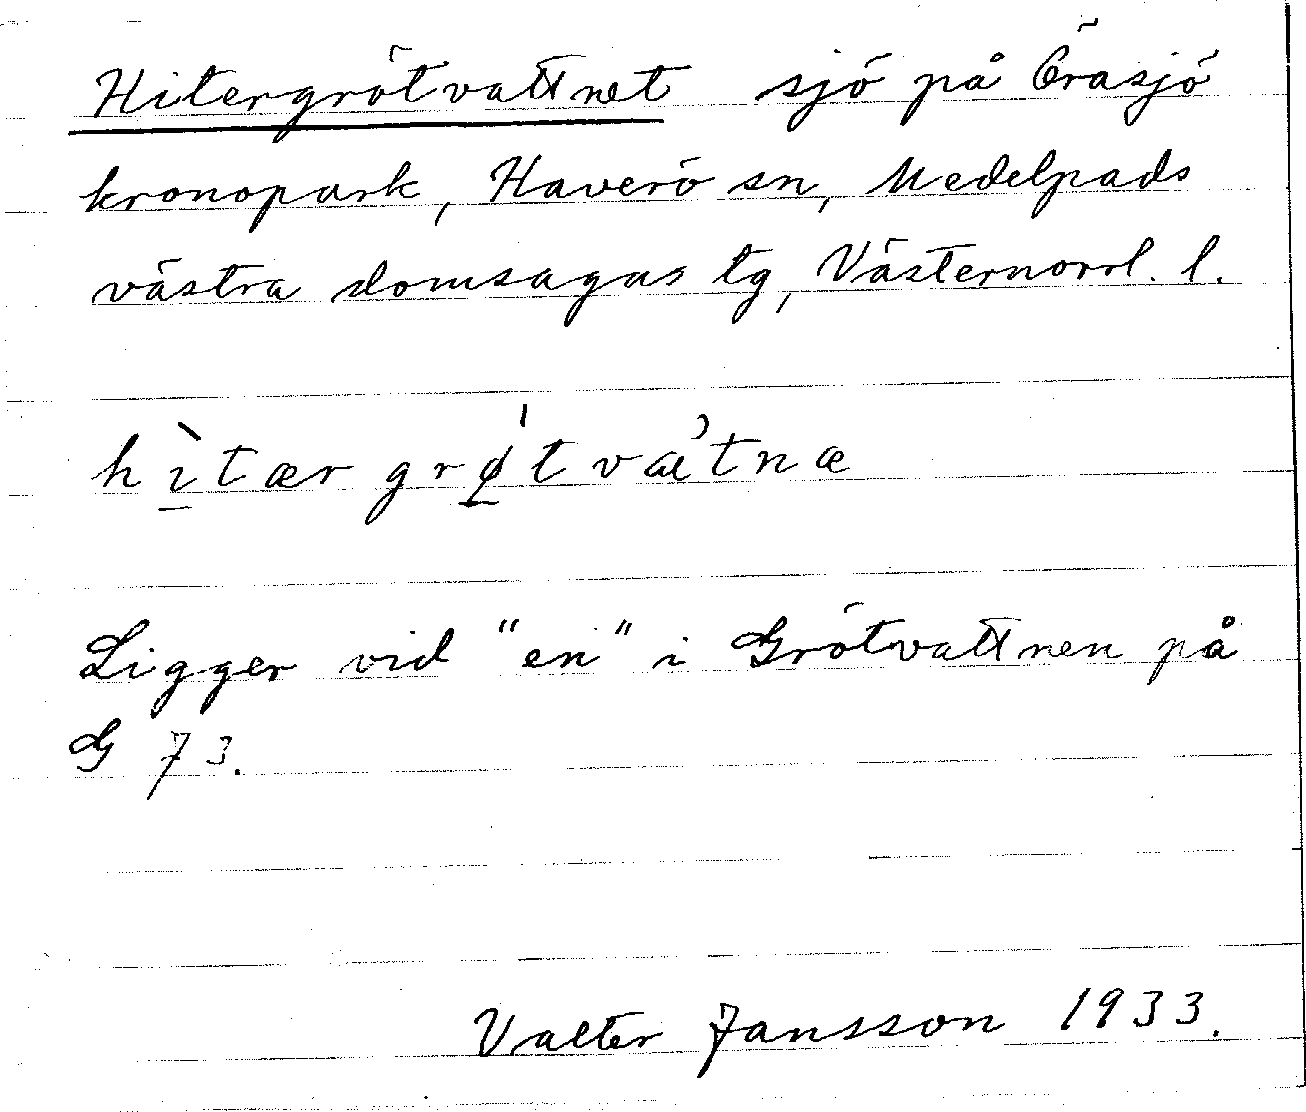 Hitergrötvattnet sjö på Örasjö
kronopark, Haverö sn, Medelpads
västra domsagas tg, Västernorrl. l.
hìtær grǿtvætnæ
Ligger vid "en" i Grötvattnen på
G 73.
Valter Jansson 1933.